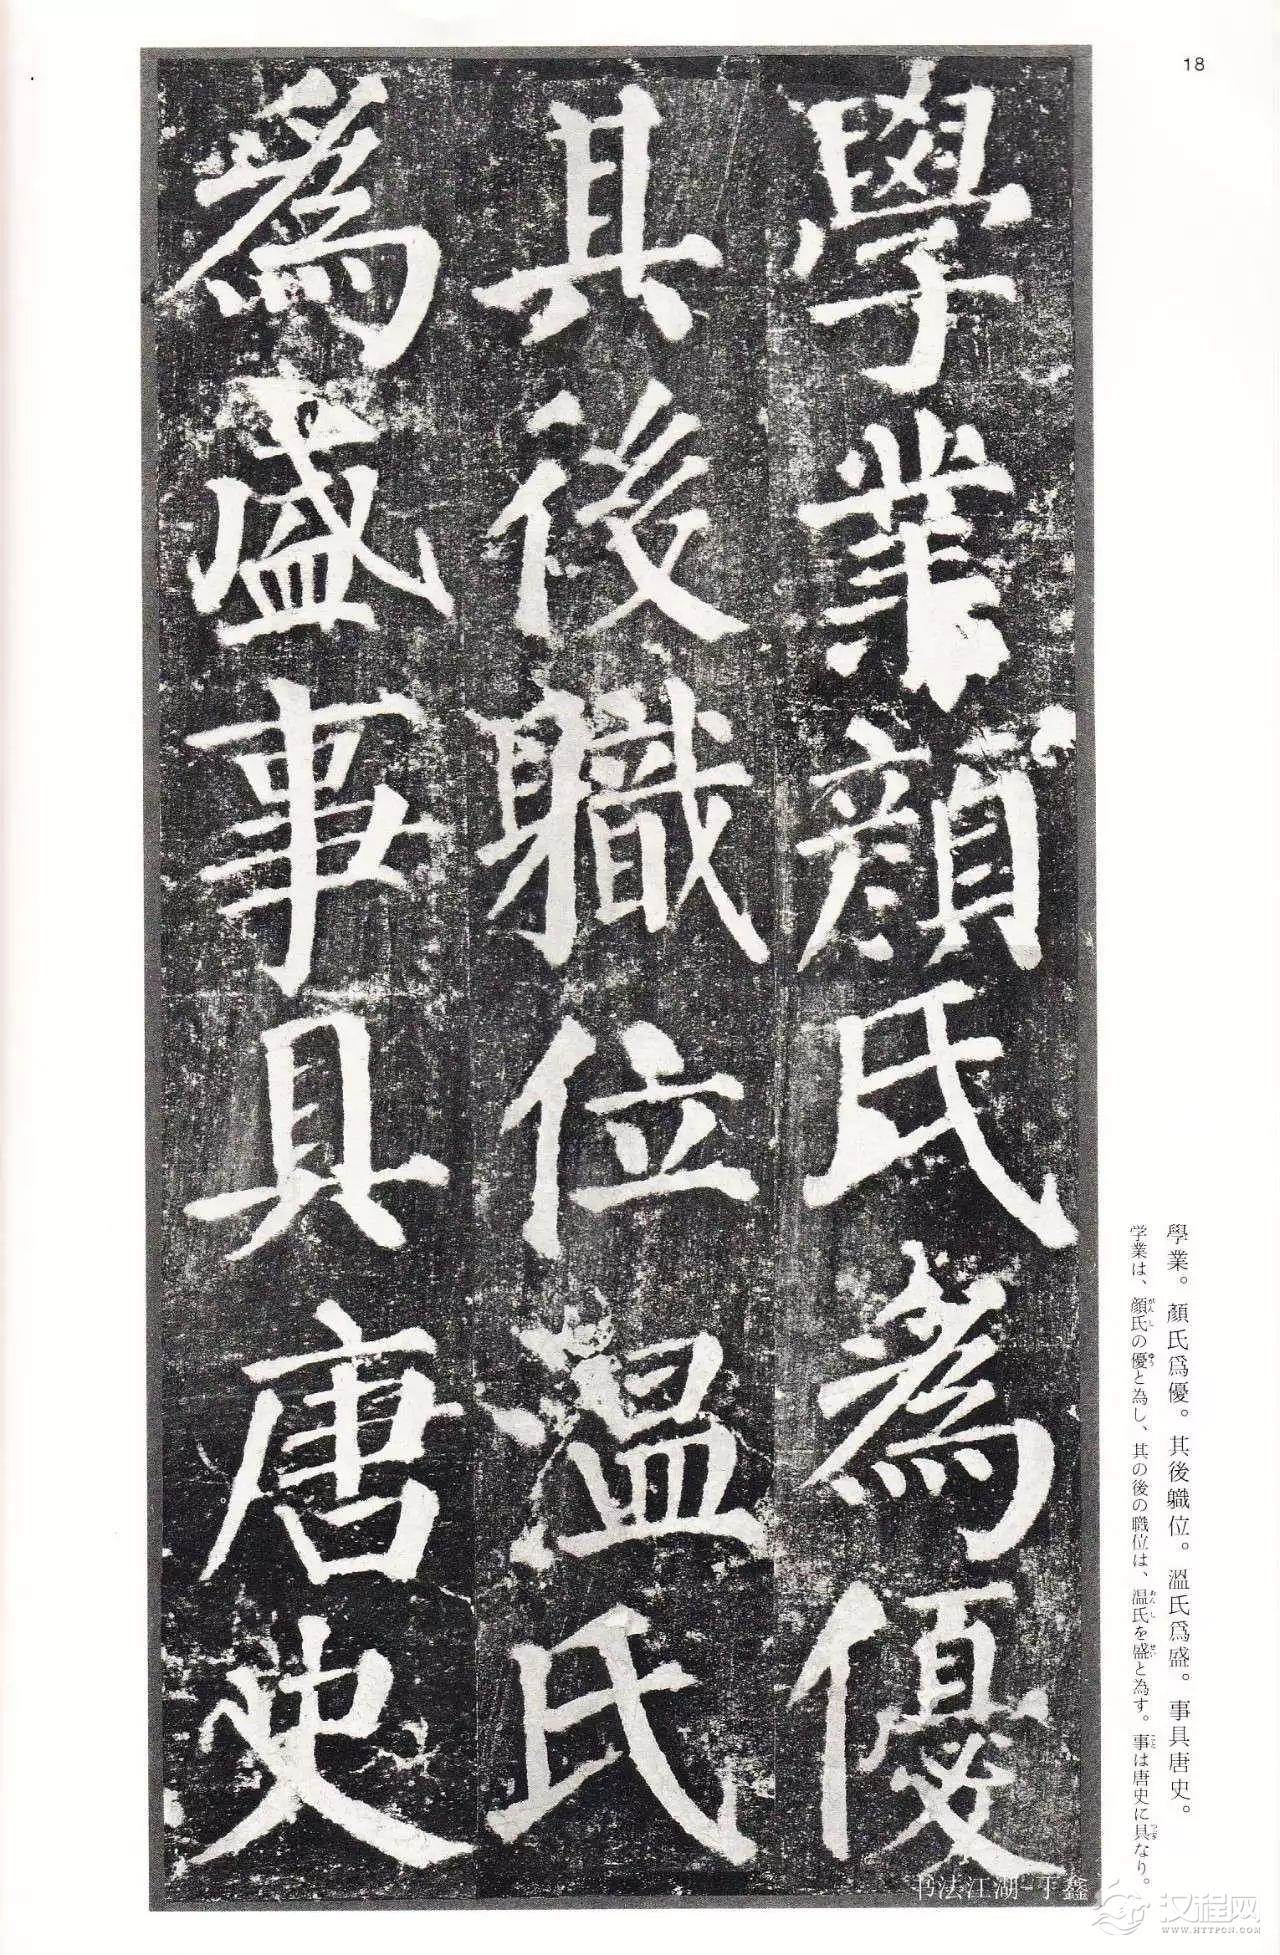 18
學業顏氏爲優
其後職位溫氏
爲盛事具唐史
學業。顏氏爲優。其後職位。溫氏爲盛。事具唐史。
学業は、顔氏の優と為し、其の後の職位は、温氏を盛と為す。事は唐史に具なり。
がんし
ゆう
おんし
せい
こと
书法江湖-于鑫
汉程网
WWW.HTTPCN.COM